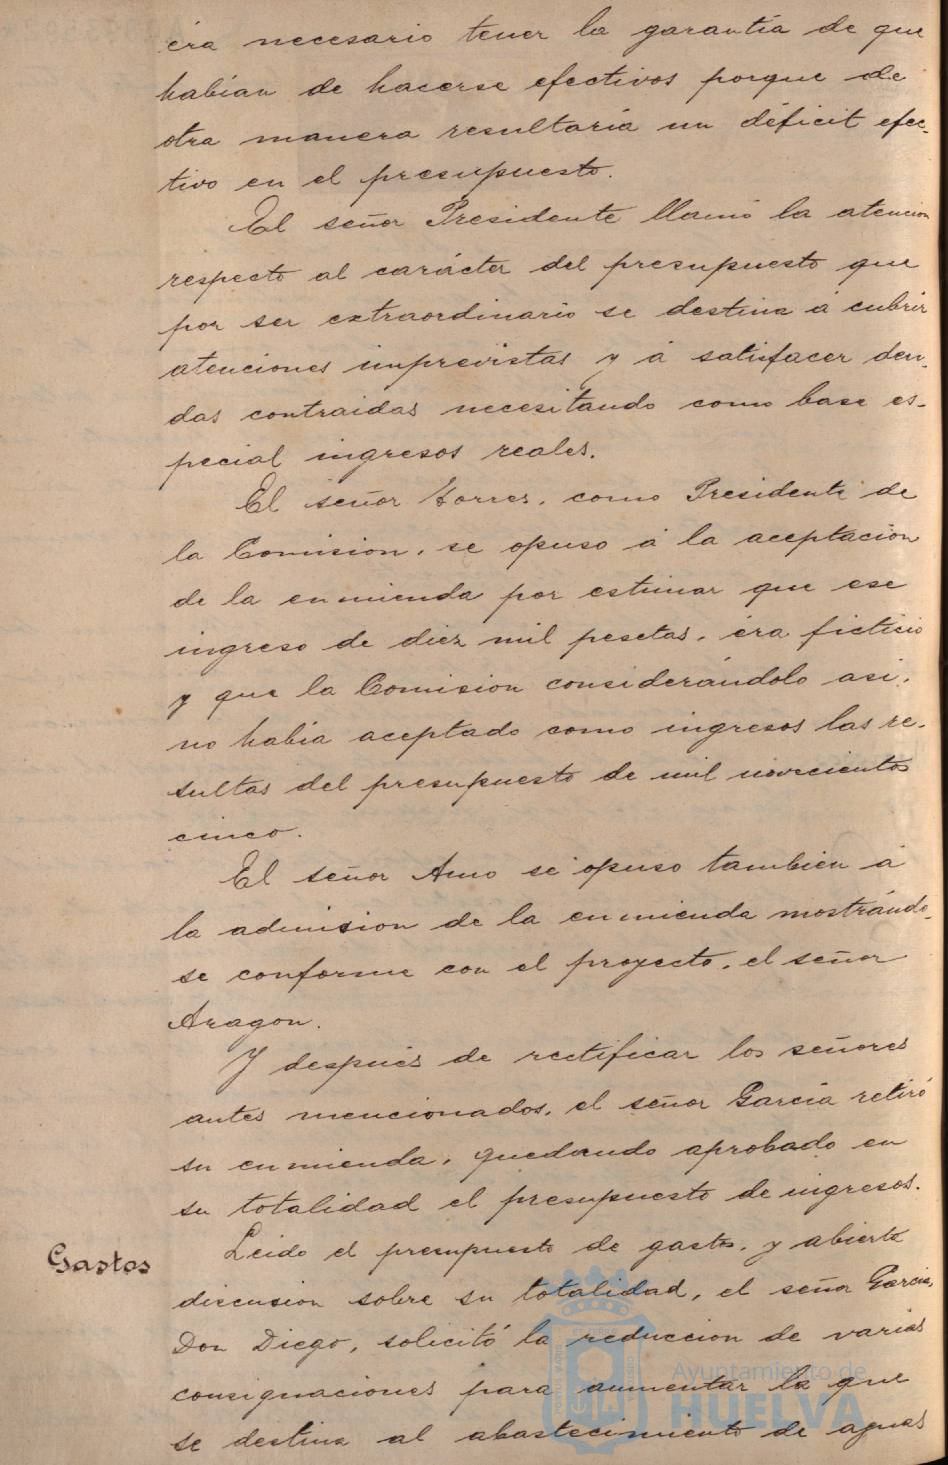 éra necesario tener la garantía de que
habían de hacerse efectivos porque de
otra manera resultaría un déficit efec-
tivo en el presupuesto.
El señor Presidente llamó la atencion
respecto al carácter del presupuesto que
por ser extraordinario se destina á cubrir
atenciones imprevistas y á satisfacer deu-
das contraidas necesitando como base es-
pecial ingresos reales.
El señor Torres, como Presidente de
la Comision, se opuso á la aceptación
de la enmienda por estimar que ese
ingreso de diez mil pesetas, éra ficticio
y que la Comision considerándolo así,
no había aceptado como ingresos las re-
sultas del presupuesto de mil novecientos
cinco.
El señor Amo se opuso tambien á
la admision de la enmienda mostrándo-
se conforme con el proyecto, el señor
Aragon.
Y después de rectificar los señores
antes mencionados, el señor García retiró
su enmienda, quedando aprobado en
su totalidad el presupuesto de ingresos.
Gastos
Leido el presupuesto de gastos, y abierta
discusion sobre su totalidad, el señor García,
Don Diego, solicitó la reduccion de varias
consignaciones para aumentar la que
se destina al abastecimiento de aguas
Ayuntamiento de
HUELVA